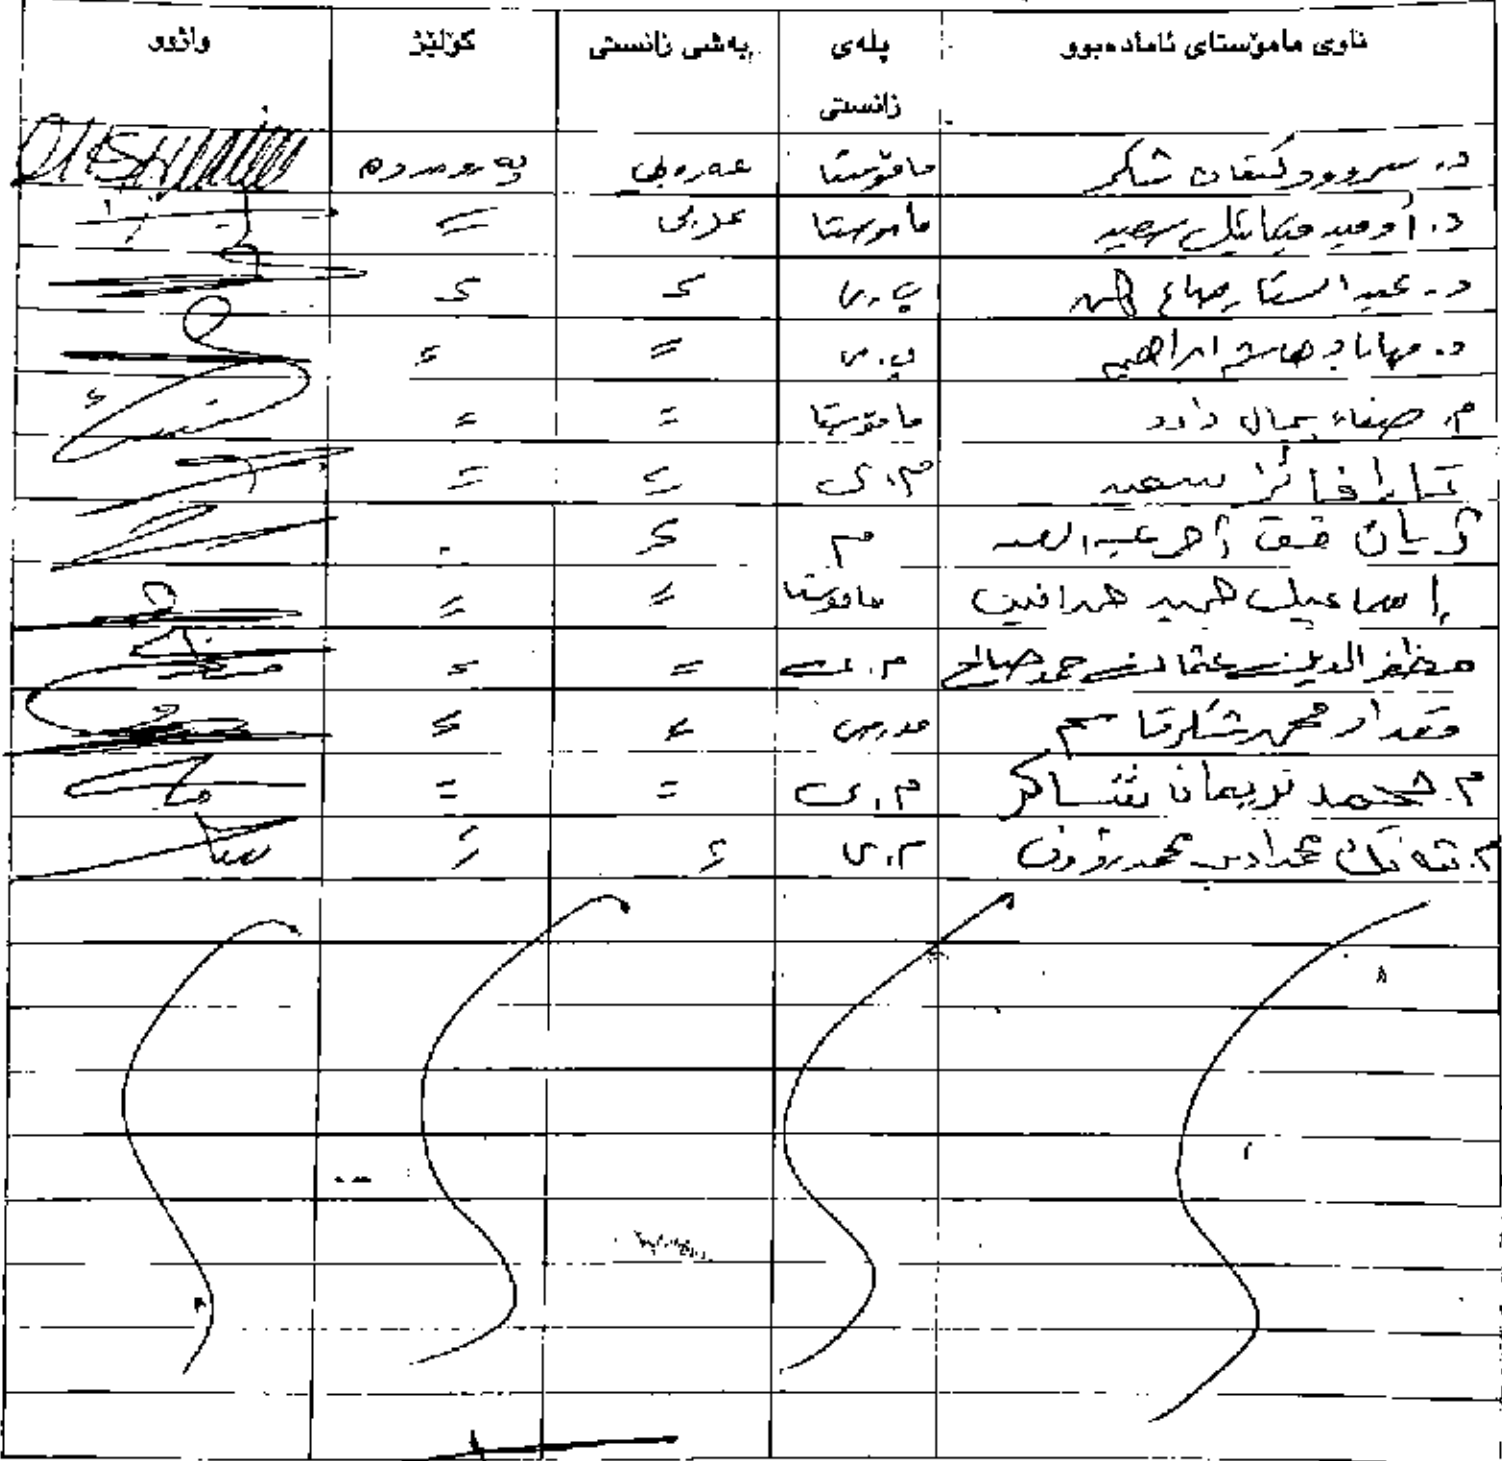 ناوی مامۆستای ئامادەبوو پلەی زانستی بەشی زانستی کۆلێژ واژوو
د. سروود کنعان شکر مامۆستا عەرەبی پەروەردە
د. أوميد ميكائيل سعيد مامۆستا عربی =
د. عبدالستار پ.ی = =
د. مهاباد هاشم ابراهيم پ.ی = =
م. صفاء جمال داود مامۆستا = =
تارا فائز سعيد م.ی = =
ژیان عبدالله م =
إسماعيل مامۆستا = =
مظفرالدين عثمان حمدصالح م.ی = =
مقداد محمد شكر قاسم مدرس = =
م. محمد نریمان شاكر م.ی = =
م. محمد رؤوف م.ی = =